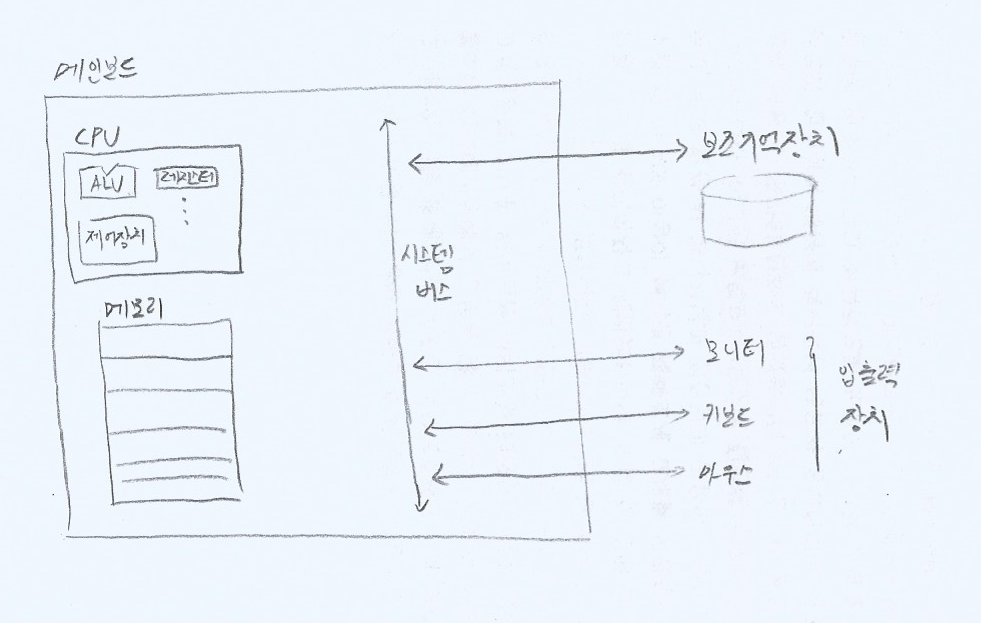 메인보드
CPU
ALU
레지스터
제어장치
메모리
시스템
버스
보조기억장치
모니터
키보드
마우스
입출력
장치